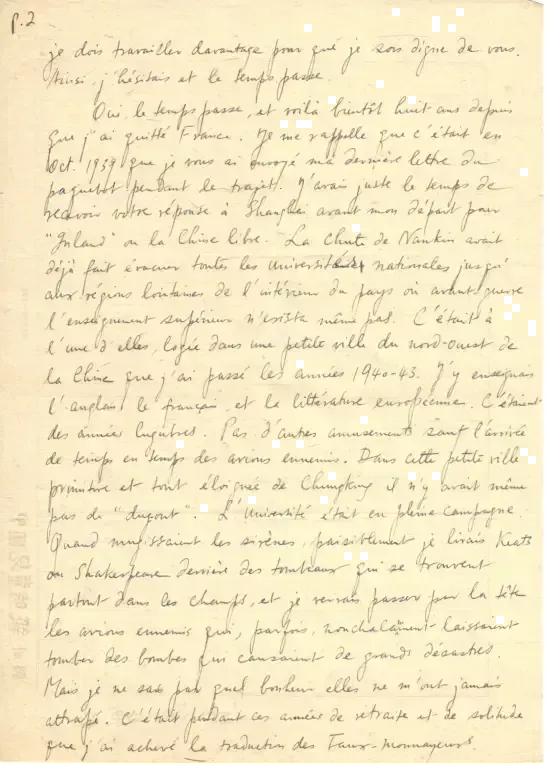 p.2
je dois travailler davantage pour que je sois digne de vous.
Ainsi, j'hésitais et le temps passe.
Oui, le temps passe, et voilà bientôt huit ans depuis
que j'ai quitté France. Je me rappelle que c'était en
Oct. 1939 que je vous ai envoyé ma dernière lettre du
paquebot pendant le trajet. J'avais juste le temps de
recevoir votre réponse à Shanghai avant mon départ pour
"Inland" ou la Chine libre. La Chute de Nankin avait
déjà fait évacuer toutes les universités nationales jusqu'
aux régions lointaines de l'intérieur du pays où avant-guerre
l'enseignement supérieur n'exista même pas. C'était à
l'une d'elles, logée dans une petite ville du nord-ouest de
la Chine que j'ai passé les années 1940-43. J'y enseignais
l'anglais, le français, et la littérature européenne. C'étaient
des années lugubres. Pas d'autres amusements sauf l'arrivée
de temps en temps des avions ennemis. Dans cette petite ville
primitive et tout éloignée de Chungking il n'y avait même
pas de "dugout". L'Université était en pleine campagne.
Quand mugissaient les sirènes, paisiblement je lisais Keats
ou Shakespeare derrière des tombeaux qui se trouvent
partout dans les champs, et je verrais passer par la tête
les avions ennemis qui, parfois, nonchalamment laissaient
tomber des bombes qui causaient de grands désastres.
Mais je ne sais par quel bonheur elles ne m'ont jamais
attrapé. C'était pendant ces années de retraite et de solitude
que j'ai achevé la traduction des Faux-monnayeurs.